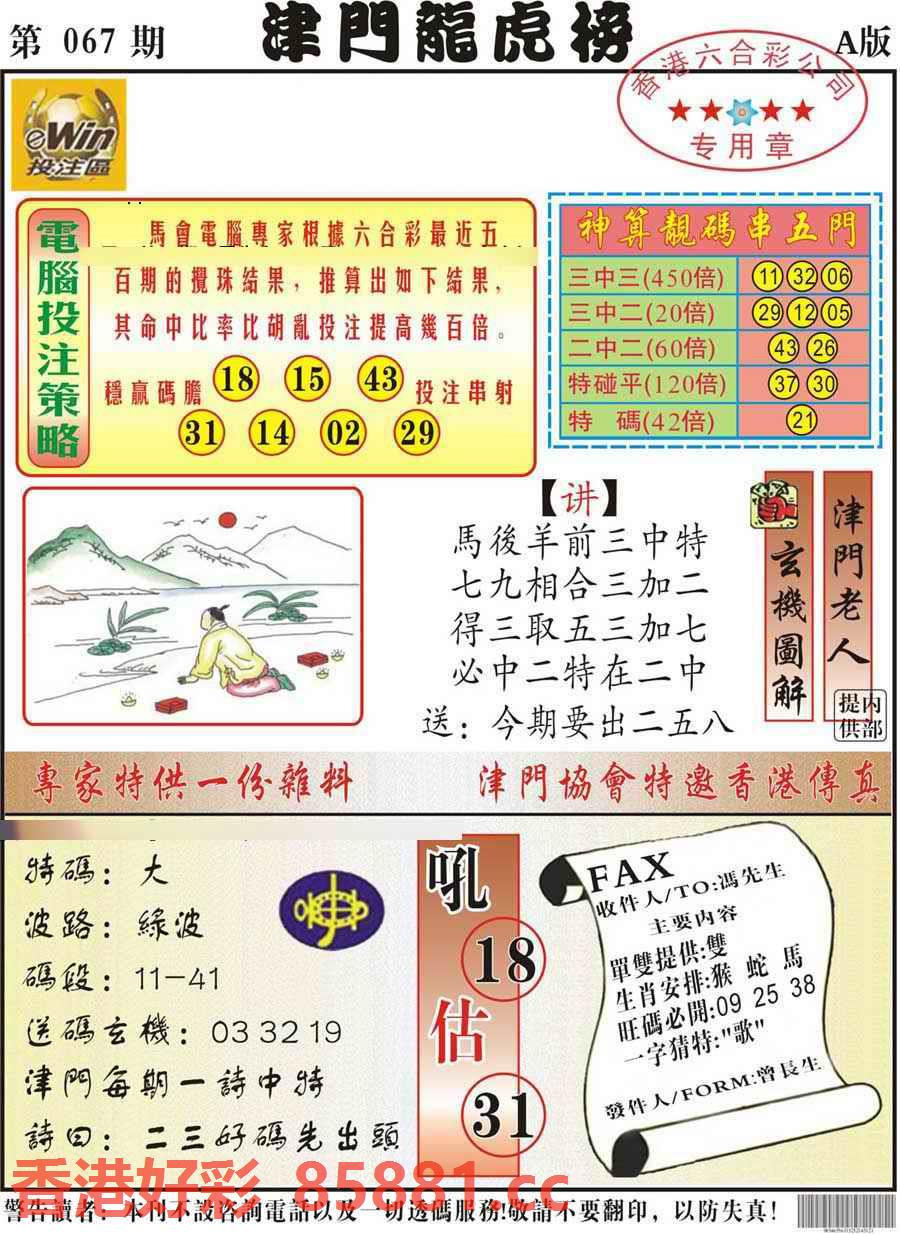 第 067 期
津門龍虎榜
A版
香港六合彩公司
专用章
eWin
投注區
電腦投注策略
馬會電腦專家根據六合彩最近五
百期的攪珠結果，推算出如下結果，
其命中比率比胡亂投注提高幾百倍。
穩贏碼膽 18 15 43 投注串射
31 14 02 29
神算靚碼串五門
三中三(450倍) 11 32 06
三中二(20倍) 29 12 05
二中二(60倍) 43 26
特碰平(120倍) 37 30
特 碼(42倍) 21
【讲】
馬後羊前三中特
七九相合三加二
得三取五三加七
必中二特在二中
送：今期要出二五八
玄機圖解
津門老人
内部提供
專家特供一份雜料
津門協會特邀香港傳真
特碼：大
波路：綠波
碼段：11-41
送碼玄機：03 32 19
津門每期一詩中特
詩曰：二三好碼先出頭
吼
18
估
31
FAX
收件人/TO:馮先生
主要内容
單雙提供:雙
生肖安排:猴 蛇 馬
旺碼必開:09 25 38
一字猜特:"歌"
發件人/FORM:曾長生
香港好彩 85881.cc
警告讀者：本刊不設咨詢電話以及一切透碼服務!敬請不要翻印，以防失真!